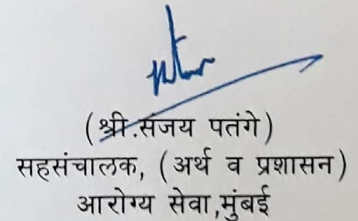 (श्री.संजय पतंगे)
सहसंचालक, (अर्थ व प्रशासन)
आरोग्य सेवा,मुंबई